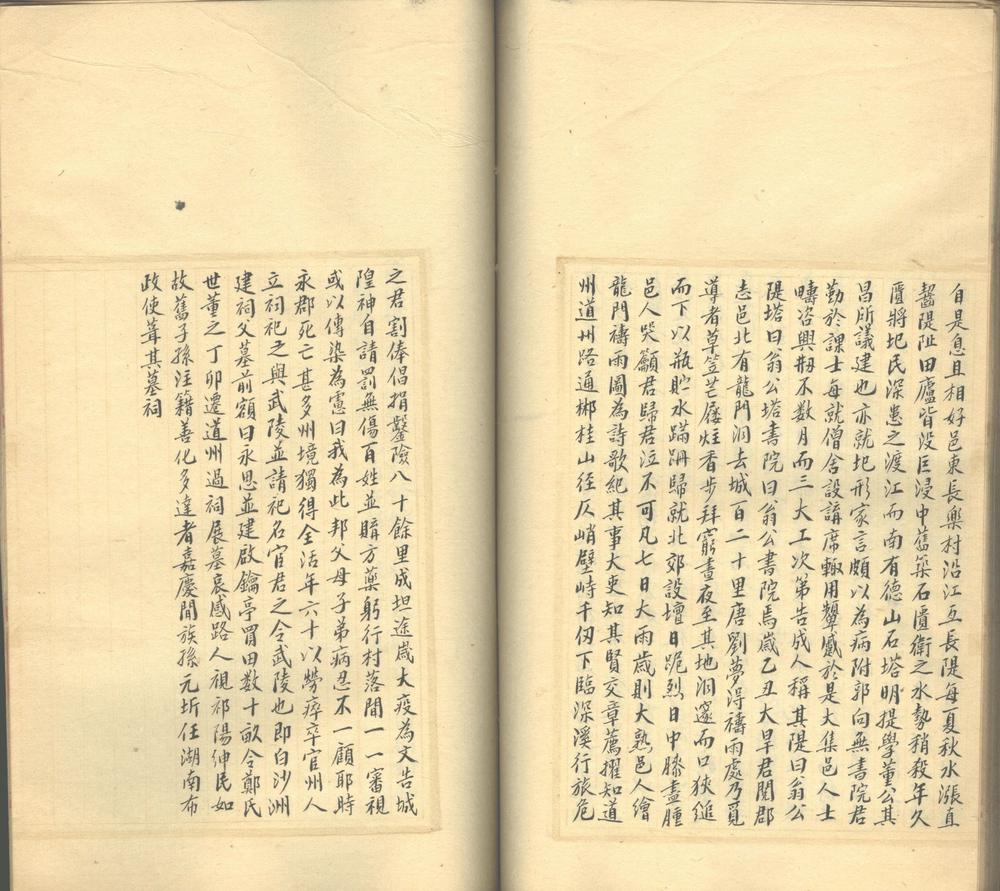 自是息且相好邑東長樂村沿江亙長隄每夏秋水漲直
齧隄阯田廬皆没巨浸中舊築石匱衛之水勢稍殺年久
匱將圮民深患之渡江而南有德山石塔明提學董公其
昌所議建也亦就圮形家言頗以為病附郭向無書院君
勤於課士每就僧舍設講席輒用顰蹙於是大集邑人士
疇咨興剏不数月而三大工次第告成人稱其隄曰翁公
隄塔曰翁公塔書院曰翁公書院焉歲乙丑大旱君閱郡
志邑北有龍門洞去城百二十里唐劉夢得禱雨處乃覓
導者草笠芒屨炷香步拜窮晝夜至其地洞邃而口狹縋
而下以瓶貯水蹣跚歸就北郊設壇日跪烈日中膝盡腫
邑人哭籲君歸君泣不可凡七日大雨歲則大熟邑人繪
龍門禱雨圖為詩歌紀其事大吏知其賢交章薦擢知道
州道州路通郴桂山徑仄峭壁峙千仞下臨深溪行旅危
之君割俸倡捐鑿險八十餘里成坦途歲大疫為文告城
隍神自請罰無傷百姓並購方藥躬行村落間一一審視
或以傳染為憲曰我為此邦父母子弟病忍不一顧耶時
永郡死亡甚多州境獨得全活年六十以勞瘁卒官州人
立祠祀之與武陵並請祀名宦君之令武陵也即白沙洲
建祠父墓前額曰永思並建啟鑰亭置田数十畝令鄭氏
世董之丁卯遷道州過祠展墓哀感路人視祁陽紳民如
故舊子孫注籍善化多達者嘉慶間族孫元圻任湖南布
政使葺其墓祠